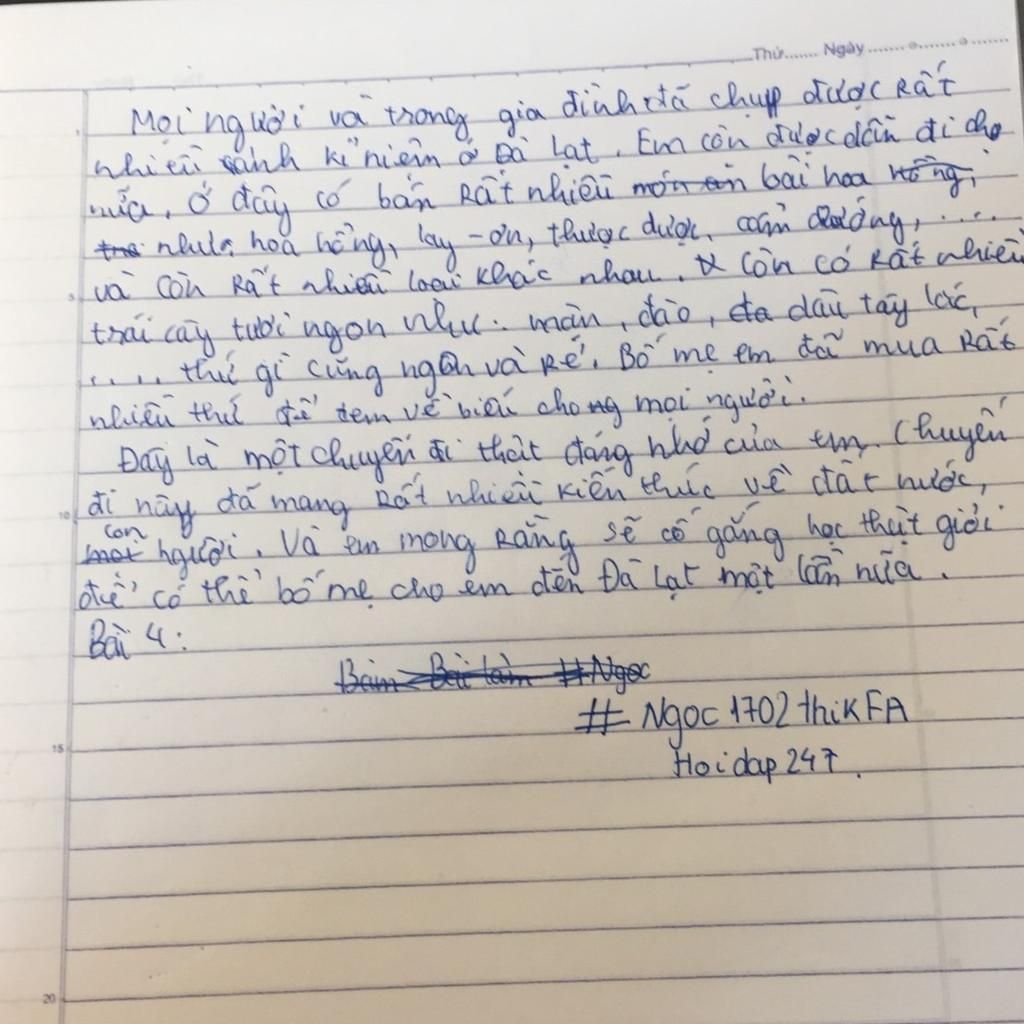 Thứ....... Ngày ....... o ....... o .......
Mọi người và trong gia đình đã chụp được Rất
nhiều ảnh kỉ niệm ở Đà Lạt. Em còn được dẫn đi chợ
nữa, Ở đây có bán Rất nhiều món ăn bài hoa hồng,
như: hoa hồng, lay-ơn, thược dược, cẩm chướng, ....
và còn Rất nhiều loại khác nhau. Còn có Rất nhiều
trái cây tươi ngon như: mận, đào, dâu tây
..... thứ gì cũng ngon và Rẻ. Bố mẹ em đã mua Rất
nhiều thứ để đem về biếu cho mọi người.
Đây là một chuyến đi thật đáng nhớ của em. Chuyến
đi này đã mang Rất nhiều kiến thức về đất nước,
con người. Và em mong Rằng sẽ cố gắng học thật giỏi
để có thể bố mẹ cho em đến Đà Lạt một lần nữa.
Bài 4:
Bài làm #Ngoc
# Ngoc1702thikFA
Hoidap247.
5
10
15
20